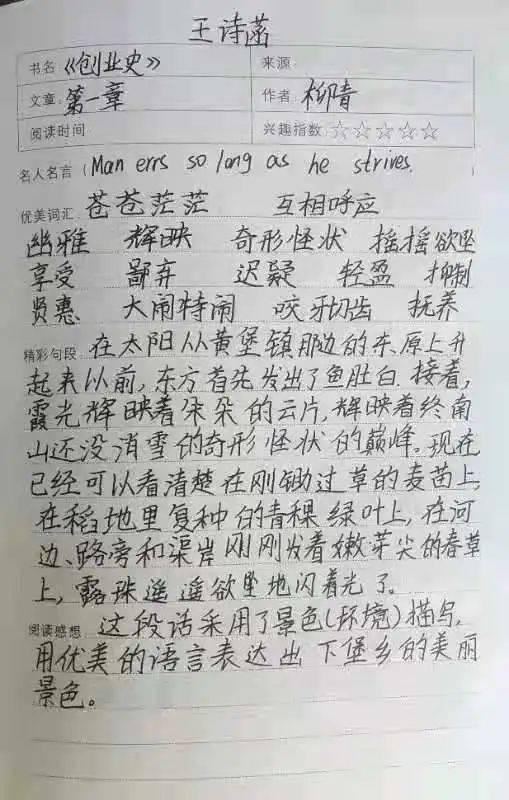 王诗菡
书名《创业史》 来源
文章 第一章 作者 柳青
阅读时间 兴趣指数 ☆☆☆☆☆
名人名言 (Man errs so long as he strives. )
优美词汇 苍苍茫茫 互相呼应
幽雅 辉映 奇形怪状 摇摇欲坠
享受 鄙弃 迟疑 轻盈 抑制
贤惠 大闹特闹 咬牙切齿 抚养
精彩句段 在太阳从黄堡镇那边的东原上升
起来以前,东方首先发出了鱼肚白.接着,
霞光辉映着朵朵的云片,辉映着终南
山还没消雪的奇形怪状的巅峰。现在
已经可以看清楚在刚锄过草的麦苗上,
在稻地里复种的青稞绿叶上,在河
边、路旁和渠岸刚刚发着嫩芽尖的春草
上,露珠遥遥欲坠地闪着光了。
阅读感想 这段话采用了景色(环境)描写,
用优美的语言表达出下堡乡的美丽
景色。